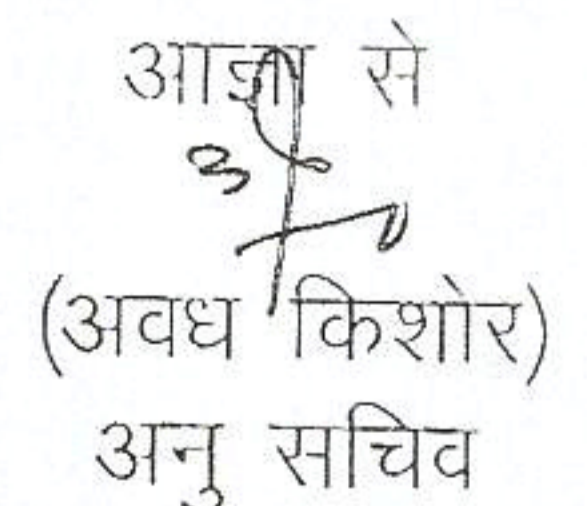 आज्ञा से
(अवध किशोर)
अनु सचिव